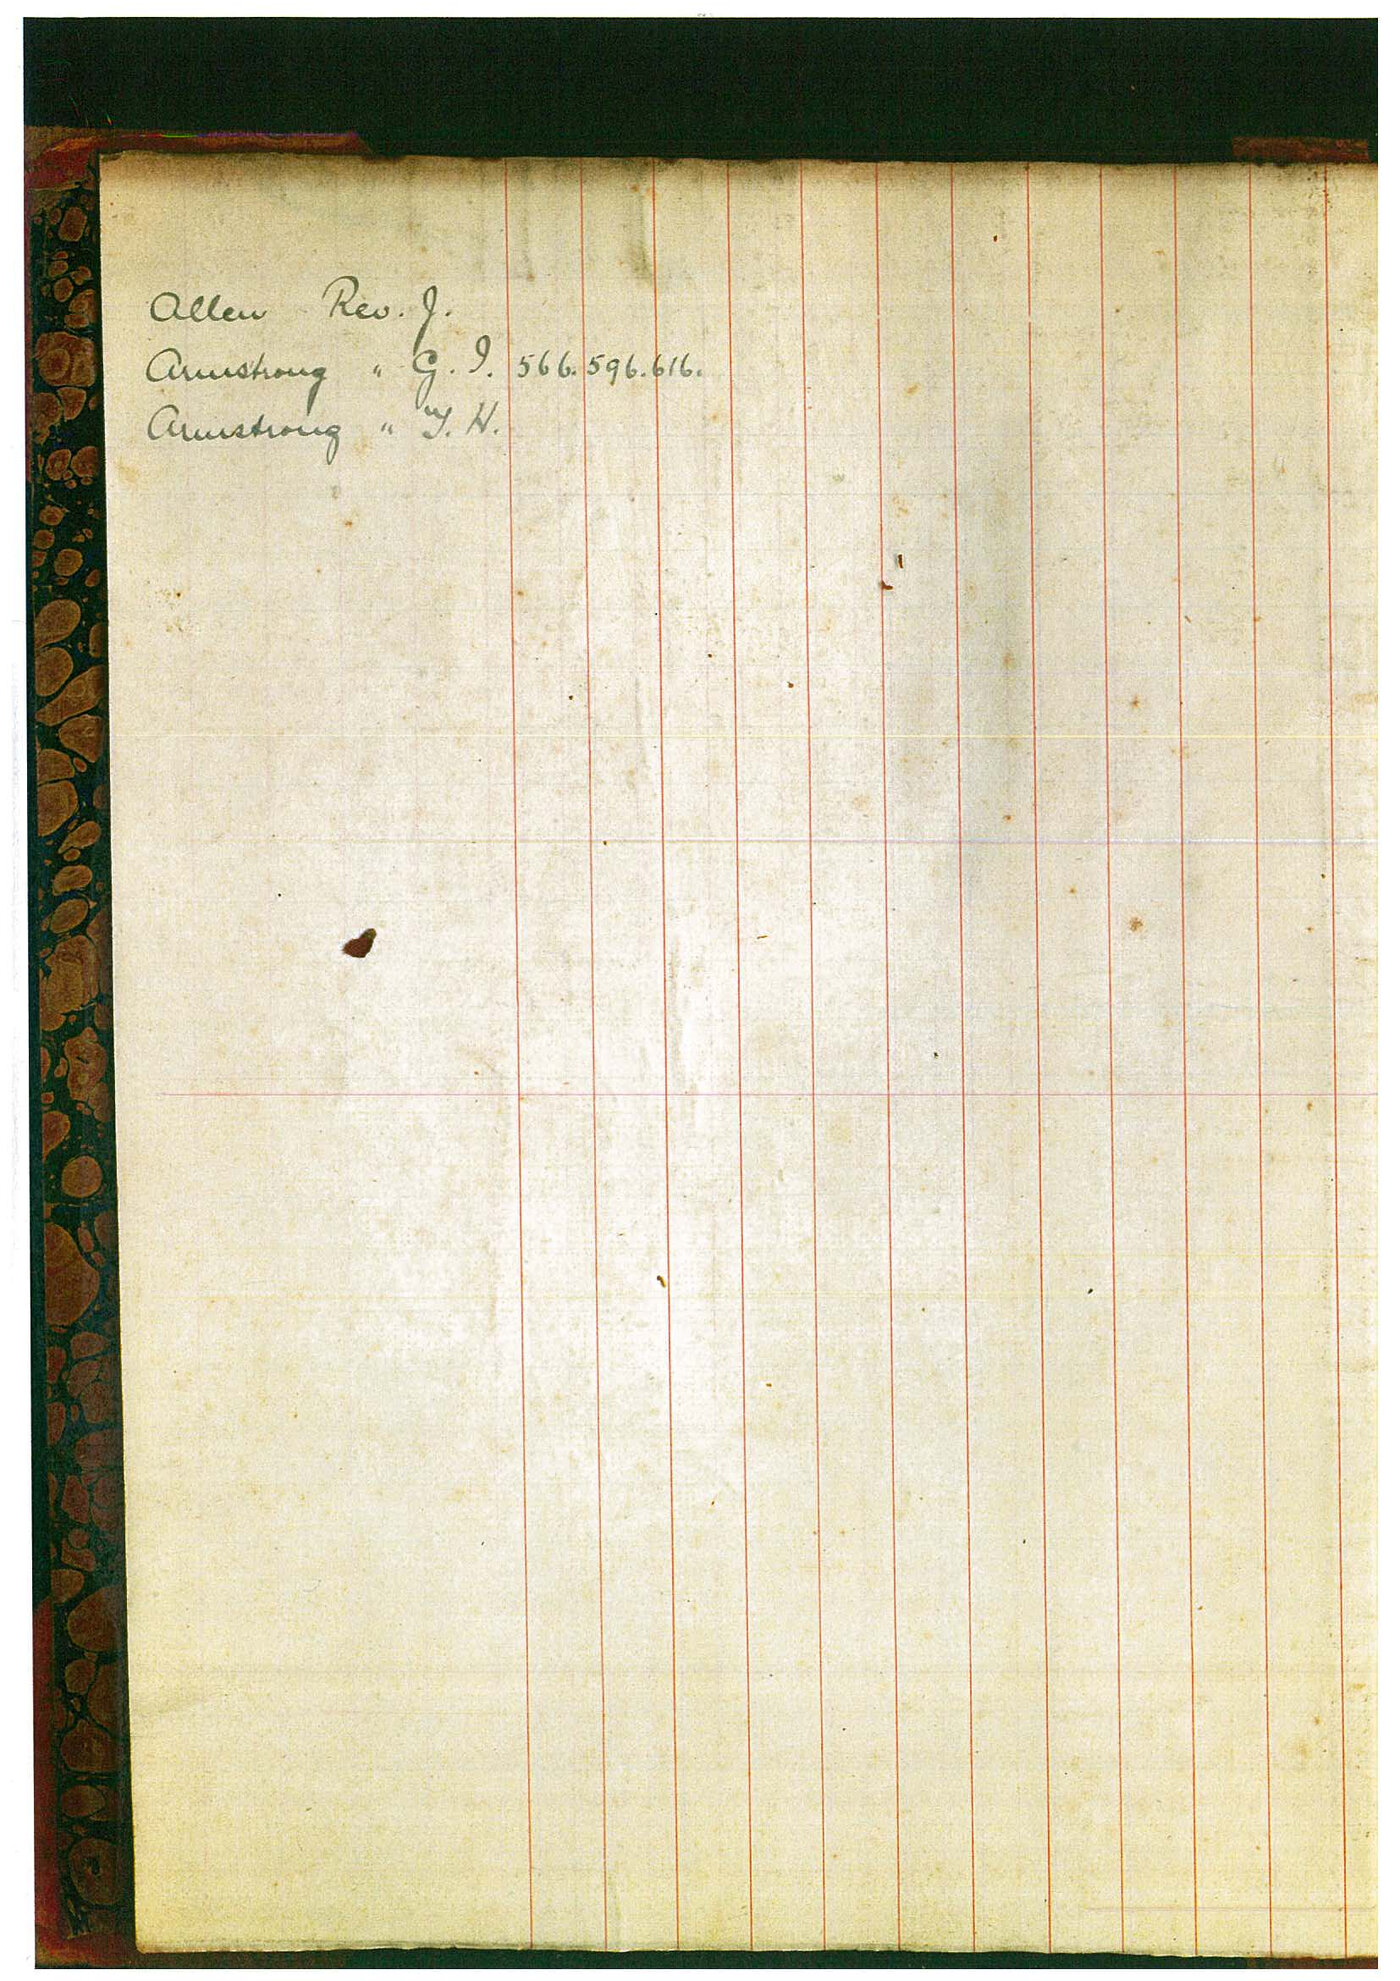 Allen Rev. J.
Armstrong " G. I. 566. 596. 616.
Armstrong " T. H.